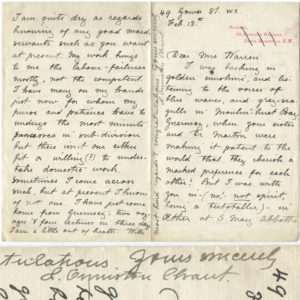 49 Gower St. W.C.
Feb. 13th
Dear Mrs Warren
I was basking in
golden sunshine, and lis-
tening to the voices of
blue waves, and grey sea
gulls in Moulin Huet Bay
Guernsey when you wrote
and the Martin were
making it patent to the
world that they cherish a
marked preference for each
other! But I was with
you in (no! not spirit
being a teetotaller) - in
aether at 5 May Abbotts
I am quite dry as regards
knowing of any good maid
servants such as you want
at present. My work brings
to me the labour-failures
mostly, not the competent.
I have many on my hands
just now for whom my
purse and patience have to
undergo the most minute
process in sub-division
but there isn't one either
fit or willing (?) to under-
take domestic work.
Sometimes I come across
such, but at present I know
of not one. I have just come
home from Guernsey:
and
I am a little out of health. With
Yours sincerely
L. Ormiston Chant
49